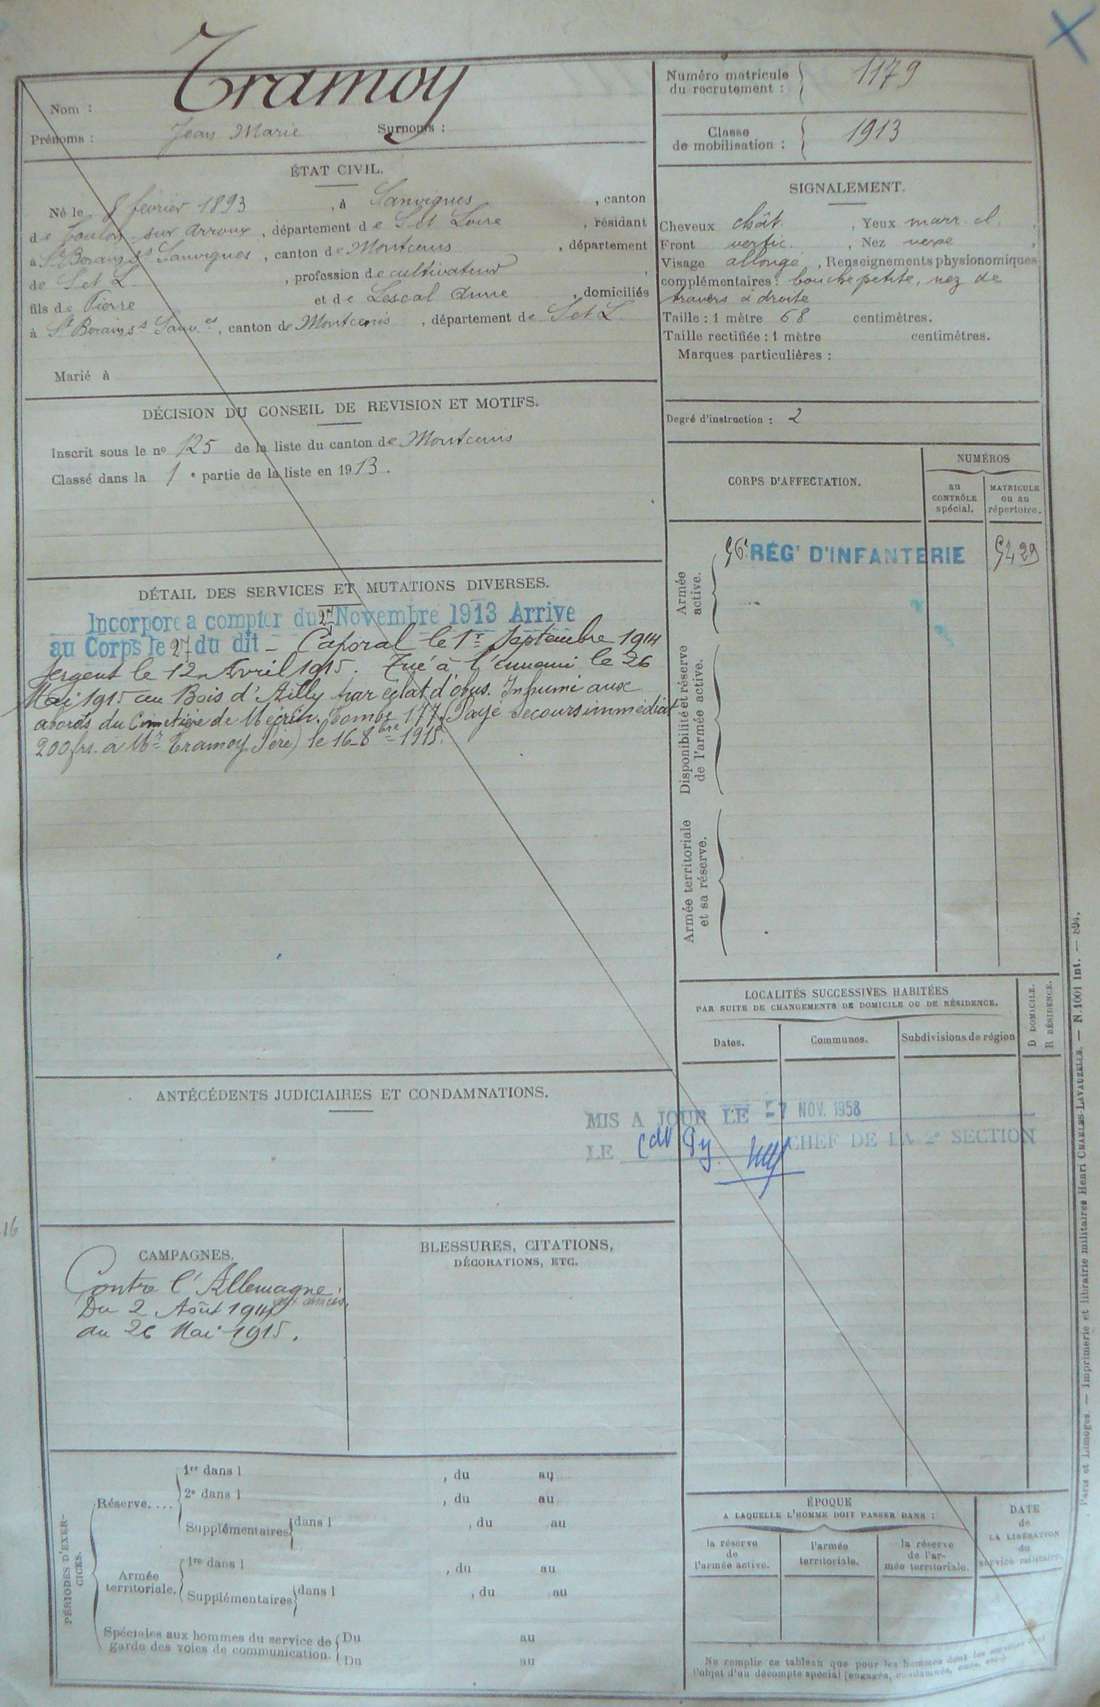 Nom : Tramoy
Prénoms : Jean Marie Surnoms :
ÉTAT CIVIL.
Né le 8 février 1893, à Sanvignes, canton
de Toulon-sur-Arroux, département de S et Loire, résidant
à St Berain ss Sanvignes, canton de Montcenis, département
de S et L, profession de cultivateur,
fils de Pierre et de Lescal Anne, domiciliés
à St Berain ss Sanves, canton de Montcenis, département de S et L.
Marié à
DÉCISION DU CONSEIL DE REVISION ET MOTIFS.
Inscrit sous le no 125 de la liste du canton de Montcenis
Classé dans la 1e partie de la liste en 1913.
DÉTAIL DES SERVICES ET MUTATIONS DIVERSES.
Incorporé a compter du 27 Novembre 1913 Arrivé
au Corps le 27 du dit - Caporal le 1er Septembre 1914
Sergent le 12 Avril 1915. Tué à l'ennemi le 26
Mai 1915 au Bois d'Ailly par éclat d'obus. Inhumé aux
abords du Cimetière de Mécrin. Tombe 177. Payé secours immédiat
200 frs. a Mr Tramoy (père) le 16 8bre 1915.
ANTÉCÉDENTS JUDICIAIRES ET CONDAMNATIONS.
MIS A JOUR LE -7 NOV. 1958
LE CHEF DE LA 2e SECTION
16
CAMPAGNES.
Contre l'Allemagne :
Du 2 Août 1914 aux armées
au 26 Mai 1915.
BLESSURES, CITATIONS,
DÉCORATIONS, ETC.
PÉRIODES D'EXERCICES.
Réserve....
1re dans l , du au
2e dans l , du au
Supplémentaires dans l , du au
Armée territoriale.
1re dans l , du au
Supplémentaires dans l , du au
Spéciales aux hommes du service de garde des voies de communication.
Du au
Du au
Numéro matricule du recrutement : 1179
Classe de mobilisation : 1913
SIGNALEMENT.
Cheveux chât., Yeux marr. cl.,
Front vertic., Nez
Visage allongé, Renseignements physionomiques
complémentaires : bouche petite, nez de
travers à droite
Taille : 1 mètre 68 centimètres.
Taille rectifiée : 1 mètre centimètres.
Marques particulières :
Degré d'instruction : 2
CORPS D'AFFECTATION.
NUMÉROS
au CONTRÔLE spécial.
MATRICULE ou au répertoire.
Armée active.
56e RÉGt D'INFANTERIE 5429
Disponibilité et réserve de l'armée active.
Armée territoriale et sa réserve.
LOCALITÉS SUCCESSIVES HABITÉES
PAR SUITE DE CHANGEMENTS DE DOMICILE OU DE RÉSIDENCE.
Dates. Communes. Subdivisions de région
D DOMICILE.
R RÉSIDENCE.
ÉPOQUE
A LAQUELLE L'HOMME DOIT PASSER DANS :
la réserve de l'armée active.
l'armée territoriale.
la réserve de l'armée territoriale.
DATE de LA LIBÉRATION du service militaire.
Ne remplir ce tableau que pour les hommes dont les services font
l'objet d'un décompte spécial (engagés, condamnés, omis, etc.)
Paris et Limoges. — Imprimerie et librairie militaires Henri CHARLES-LAVAUZELLE. — N. 1001 Int. — 894.